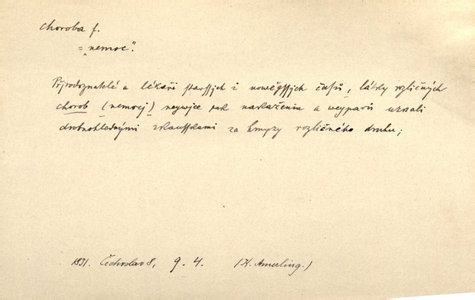 choroba f.
= „nemoc“.
Přjrodoznatelé a lékaři starssjch i nowěgssjch časů, látky rozličných
chorob (nemocj) neywjce pak nakaženin a weyparů uznali
drobnohlednými zkausskami za hmyzy rozličného druhu;
1831. Čechoslav 8, 9. 4. (K. Amerling.)